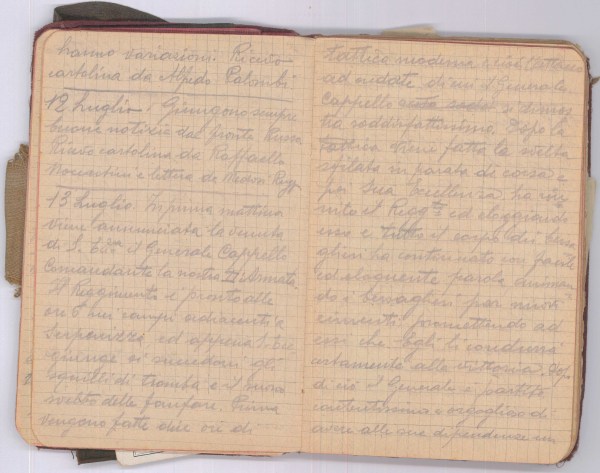 hanno variazioni. Ricevo
cartolina da Alfredo Palombi
12 Luglio. Giungono sempre
buone notizie dal fronte Russo.
Ricevo cartolina da Raffaello
e lettera da
13 Luglio. In prima mattina
viene annunciata la venuta
di S. Ecc.za il Generale Cappello
Comandante la nostra II Armata.
Il Reggimento è pronto alle
ore 6 nei campi adiacenti a
ed appena S. Ecc
giunge si succedono gli
squilli di tromba e il suono
svelto delle fanfare. Prima
vengono fatte due ore di
tattica moderna
di cui il Generale
Cappello si dimos
tra soddisfattissimo. Dopo la
tattica viene fatta la svelta
sfilata in parata di corsa e
poi Sua Eccellenza ha riu
nito il Regg.to ed elogiando
esso e tutto il corpo dei bersa
glieri ha continuato con facile
ed eloquente parola
do i bersaglieri per nuovi
cimenti promettendo ad
essi che Egli li condurrà
certamente alla vittoria. Dop
di ciò il Generale è partito
contentissimo e orgoglioso di
avere alle sue dipendenze un